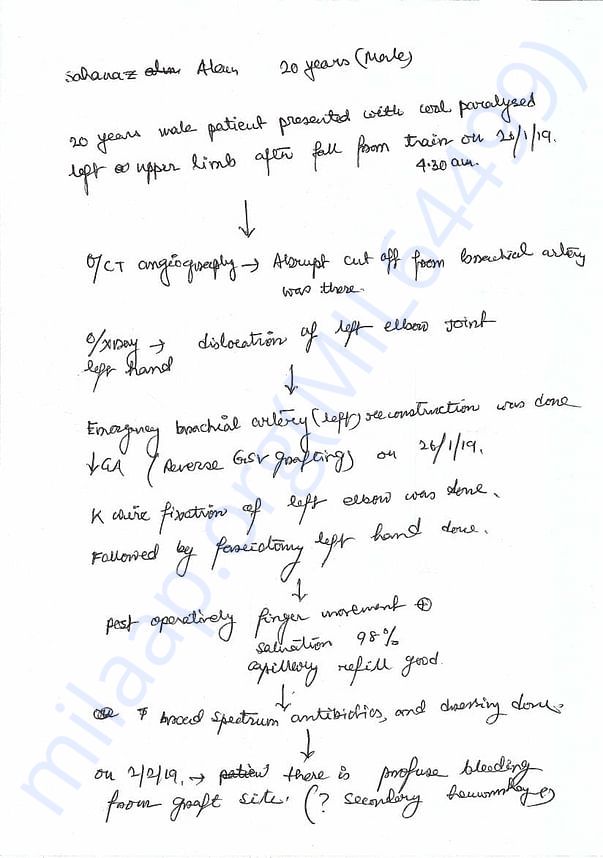 Sahanaz Alam 20 years (Male)
20 years male patient presented with cool paralysed
left upper limb after fall from train on 26/1/19.
4.30 am.
↓
O/CT angiography → Abrupt cut off from brachial artery
was there.
O/XRay → dislocation of left elbow joint
left hand
↓
Emergency brachial artery (left) reconstruction was done
↓GA (Reverse GSV grafting) on 26/1/19.
K wire fixation of left elbow was done.
Followed by fasciotomy left hand done.
↓
post operatively finger movement ⊕
saturation 98%
capillary refill good.
↓
broad spectrum antibiotics, and dressing done.
↓
on 2/2/19, → patient there is profuse bleeding
from graft site. (? secondary
milaap.org(MIL64499)